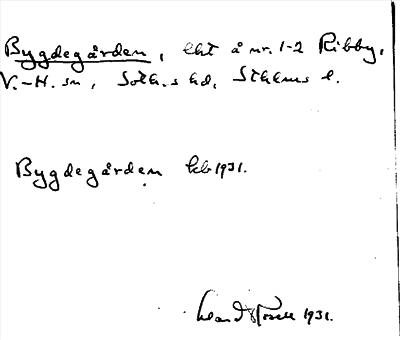 Bygdegården, lht å nr. 1-2 Ribby,
V.-H. sn, Soth.s hd, Sthlms l.
Bygdegården kb 1931.
1931.